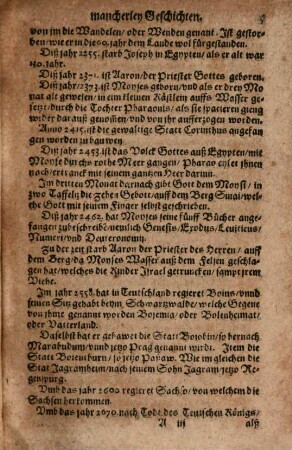 mancherley Geschichten.
von jm die Wandelen / oder Wenden genant. Ist gestor-
ben / wie er in die 60. jahr dem Lande wol fürgestanden.
Diß jahr 2255. starb Joseph in Egypten / als er alt war
110. jahr.
Diß jahr 2371. ist Aaron / der Priester Gottes geboren.
Diß jahr / 2373. ist Moyses geborn / vnd als er drey Mo-
nat alt gewesen / in einem kleinen Kästlein auffs Wasser ge-
setzt / durch die Tochter Pharaonis / als sie spacieren gieng
wider darauß genom̃en / vnd von jhr aufferzogen worden.
Anno 2415. ist die gewaltige Statt Corinthus angefan-
gen worden zu bauwen.
Diß jahr 2453 ist das Volck Gottes auß Egypten / mit
Moyse durchs rothe Meer gangen / Pharao eylet jhnen
nach / ertranck mit seinem gantzen Heer darinn.
Im dritten Monat darnach gibt Gott dem Moysi / in
zwo Taffeln die zehen Gebott / auff dem Berg Sinai / wel-
che Gott mit seinem Finger selbst geschrieben.
Diß jahr 2462. hat Moyses seine fünff Bücher ange-
fangen zubeschreibẽ / neu̇lich Genesis / Exodus / Leuiticus /
Numeri / vnd Deuteronomij.
Zu der zeit starb Aaron der Priester des Herren / auff
dem Berg / da Moyses Wasser auß dem Felsen geschla-
gen hat / welches die Kinder Israel getruncken / sampt jrem
Viehe.
Im jahr 2558. hat in Teutschland regieret Boius / vnd
seinen Sitz gehabt beym Schwartzwalde / welche Gegene
von jhme genannt worden Bojemia / oder Bolenheimat /
oder Vatterland.
Daselbst hat er gebawet die Statt Boiobin / so hernach
Marabudum / vnd jetzo Prag genannt wirdt. Item die
Statt Boienburn / so jetzo Passaw. Wie im gleichen die
Stat Jagramheim / nach jeinem Sohn Jagram / jetzo Re-
genspurg.
Vmb das jahr 2600 regieret Sachso / von welchem die
Sachsen herkommen.
Vmb das jahr 2670. nach Todt des Teutschen Königs /
A iij
alß